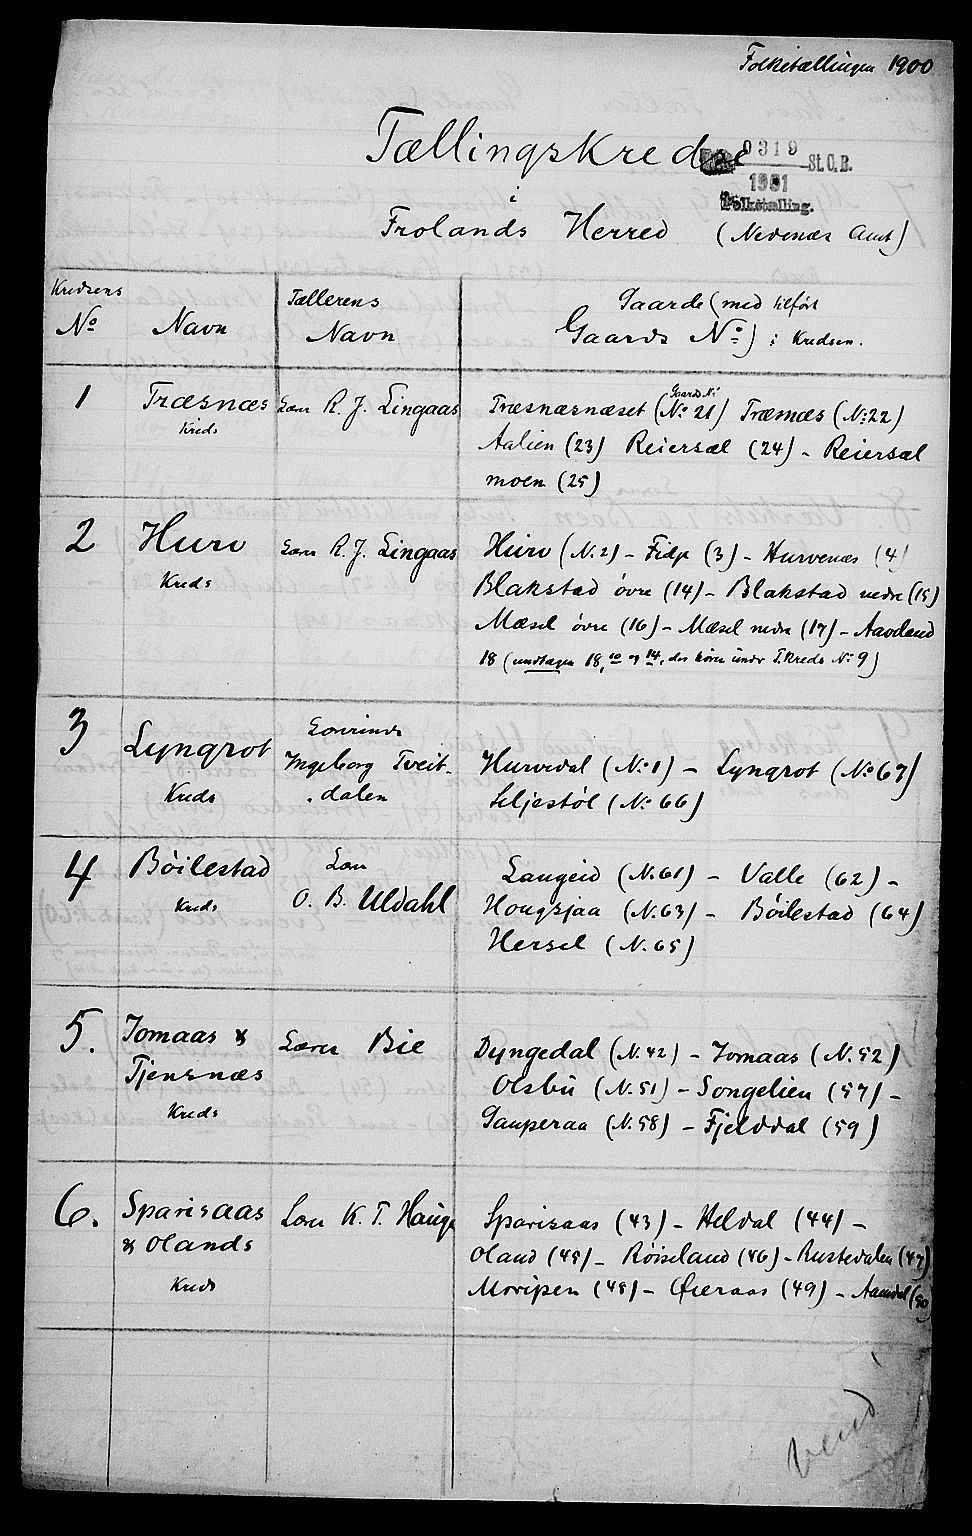 Folketællingen 1900
Tællingskredse
0319 St. C. B.
1901
Folketælling.
i
Frolands Herred (Nedenæs Amt)
Kredsens
No Navn
Tællerens
Navn
Gaarde (med tilført
Gaards No) i Kredsen.
1 Træsnæs
Kreds
Lærer R. J. Lingaas
Gaards No
Træsnæsnæset (No 21) Træsnæs (No 22)
Aalien (23) Reiersæl (24) - Reiersæl
moen (25)
2 Hurv
Kreds
Lærer R. J. Lingaas
Hurv (N. 2) - Fidje (3) - Hurvenæs (4)
Blakstad øvre (14) - Blakstad nedre (15)
Mæsel øvre (16) - Mæsel nedre (17) - Aaveland
18 (undtagen 18, 10 og 14, der hører under T. Kreds No 9)
3 Lyngrot
Kreds
Lærerinde
Ingeborg Tveit-
dalen
Hurvedal (No 1) - Lyngrot (No 67)
Seljestøl (No 66)
4 Bøilestad
Kreds
Lærer
O. B. Uldahl
Laugeid (N. 61) - Valle (62) -
Hougsjaa (N. 63) - Bøilestad (64)
Hersel (N. 65)
5. Jomaas &
Tjensnæs
Kreds
Lærer Bie
Dyngedal (N. 42) - Jomaas (N. 52)
Olsbu (N. 51) - Songelien (57) -
Gauperaa (N. 58) - Fjelddal (59)
6. Sparisaas
& Olands
Kreds
Lærer K. T. Hauge
Sparisaas (43) - Heldal (44) -
Oland (45) - Røiseland (46) - Rustedalen (47)
Moripen (48) - Øieraas (49) - Aamdal (50)
Vend